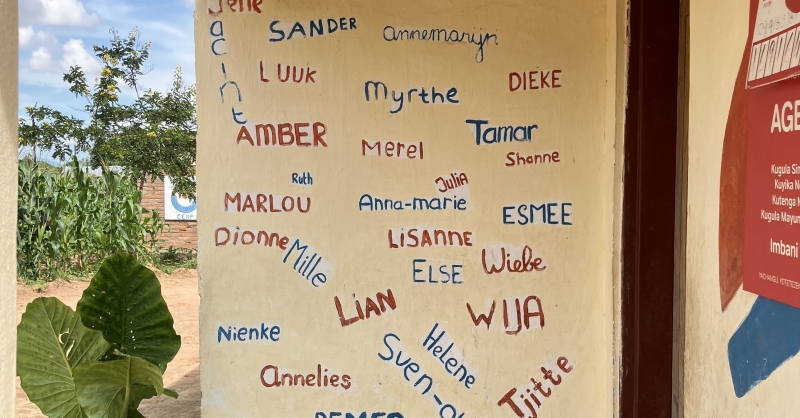 Jacint
SANDER
annemarijn
LUUK
Myrthe
DIEKE
AMBER
Merel
Tamar
Shanne
Ruth
Julia
MARLOU
Anna-marie
ESMEE
Dionne
Mille
LISANNE
ELSE
Wiebe
LIAN
WIJA
Nienke
Helene
Sven-
Annelies
Tjitte
AGE
Kugula
Kuyika
Kutenga
Kugula
Imbani